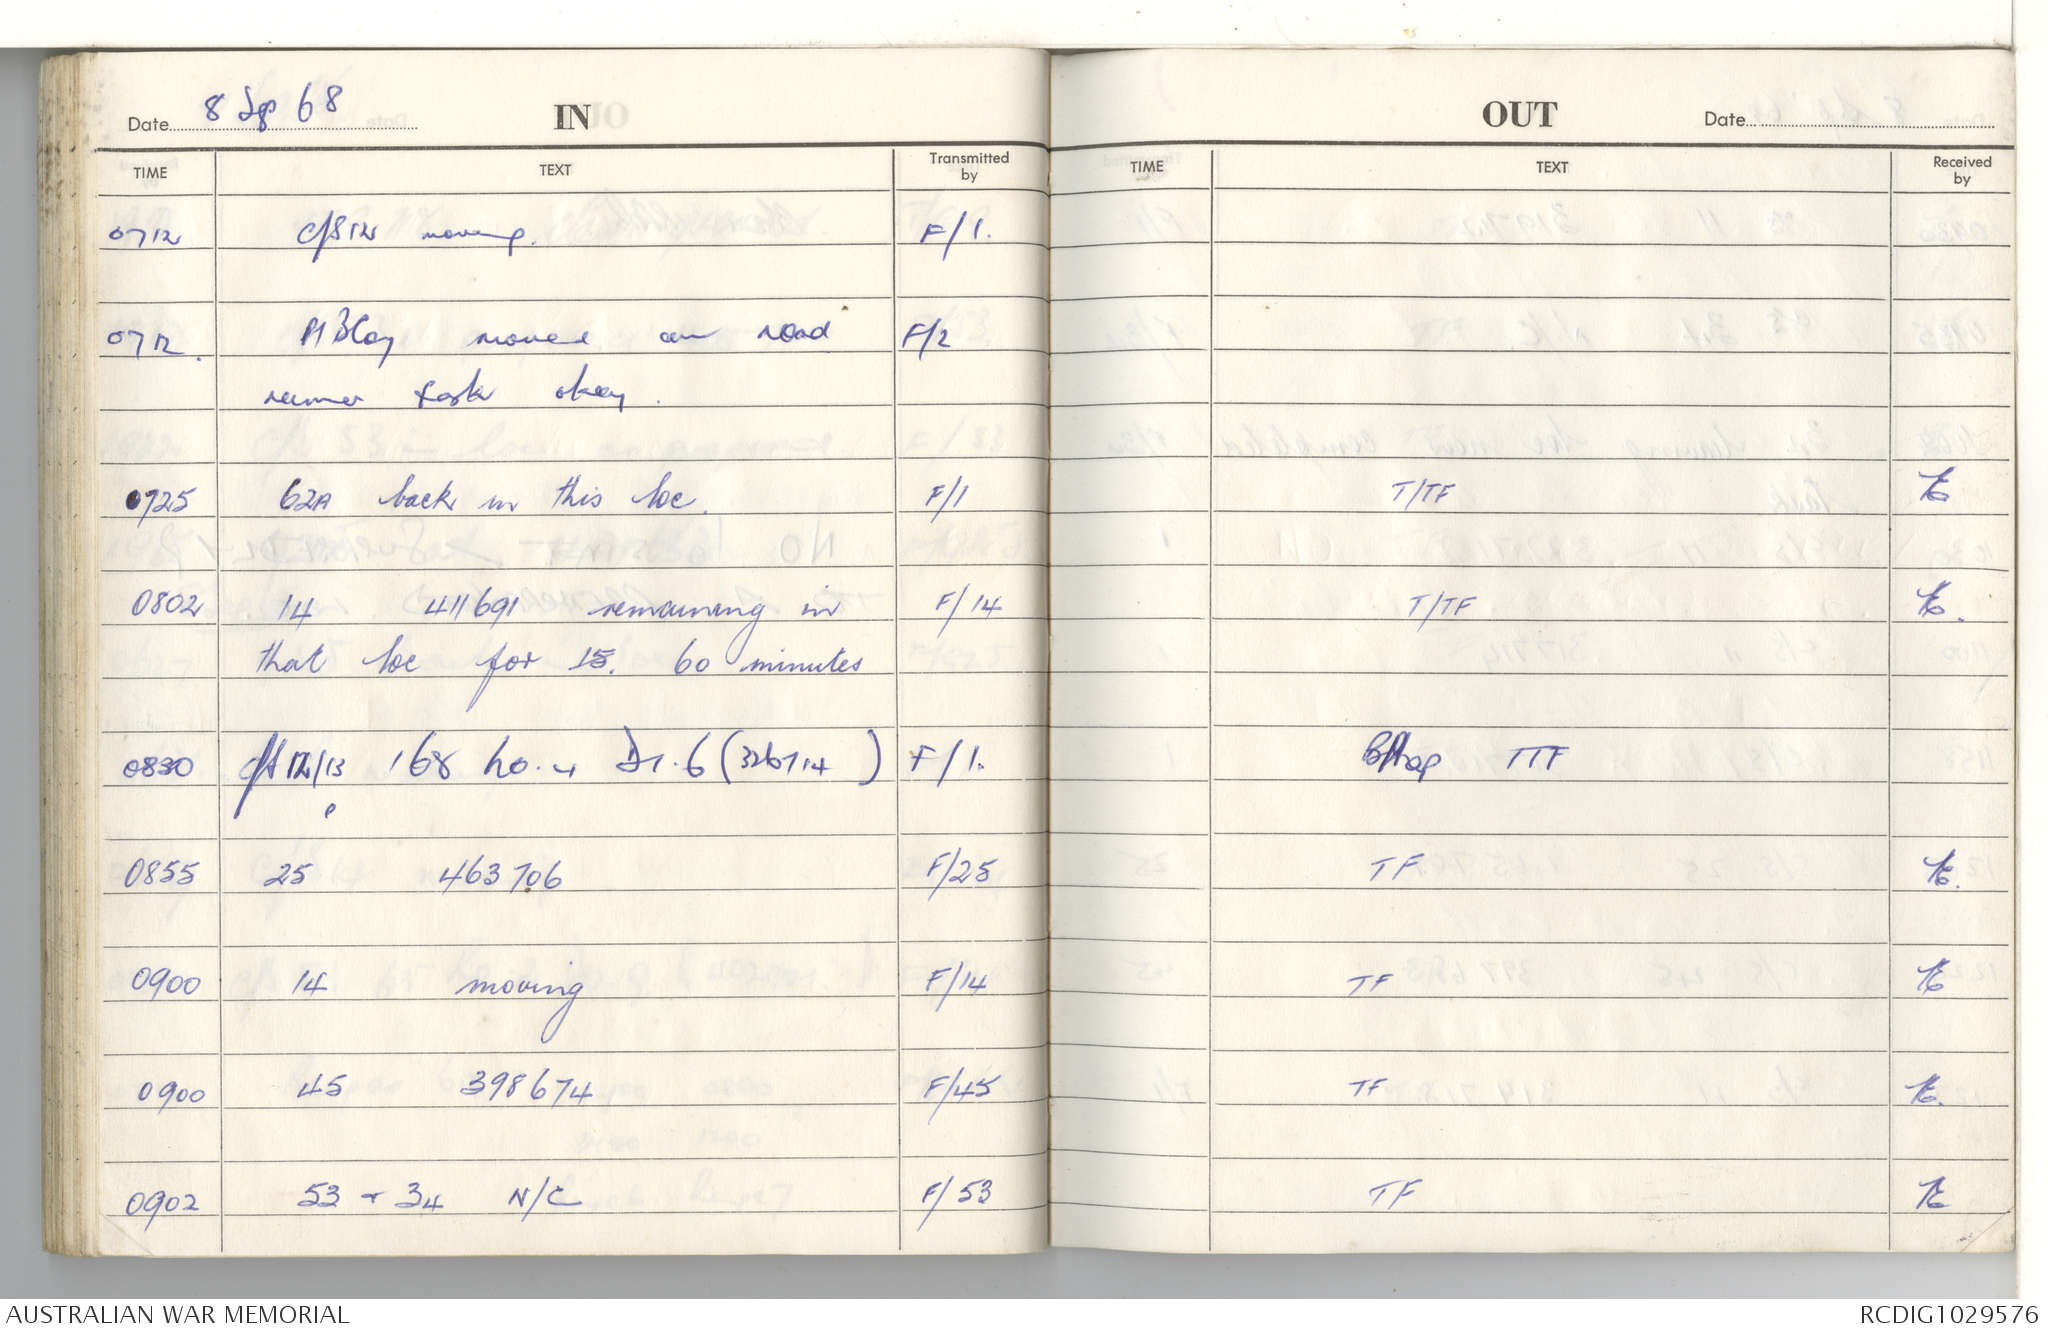 Date 8 Sep 68 IN
TIME TEXT Transmitted by
0712 C/S 12 moving. F/1.
0712. Coy moved on road F/2
runner task okay.
0725 62A back in this loc. F/1
0802 14 411691 remaining in F/14
that loc for 15. 60 minutes
0830 12/13 168 ho. (326714) F/1.
0855 25 463706 F/25
0900 14 moving F/14
0900 45 398674 F/45
0902 53 + 34 N/C F/53
OUT Date
TIME TEXT Received by
T/TF
T/TF
TTF
TF
TF
TF
TF
AUSTRALIAN WAR MEMORIAL
RCDIG1029576